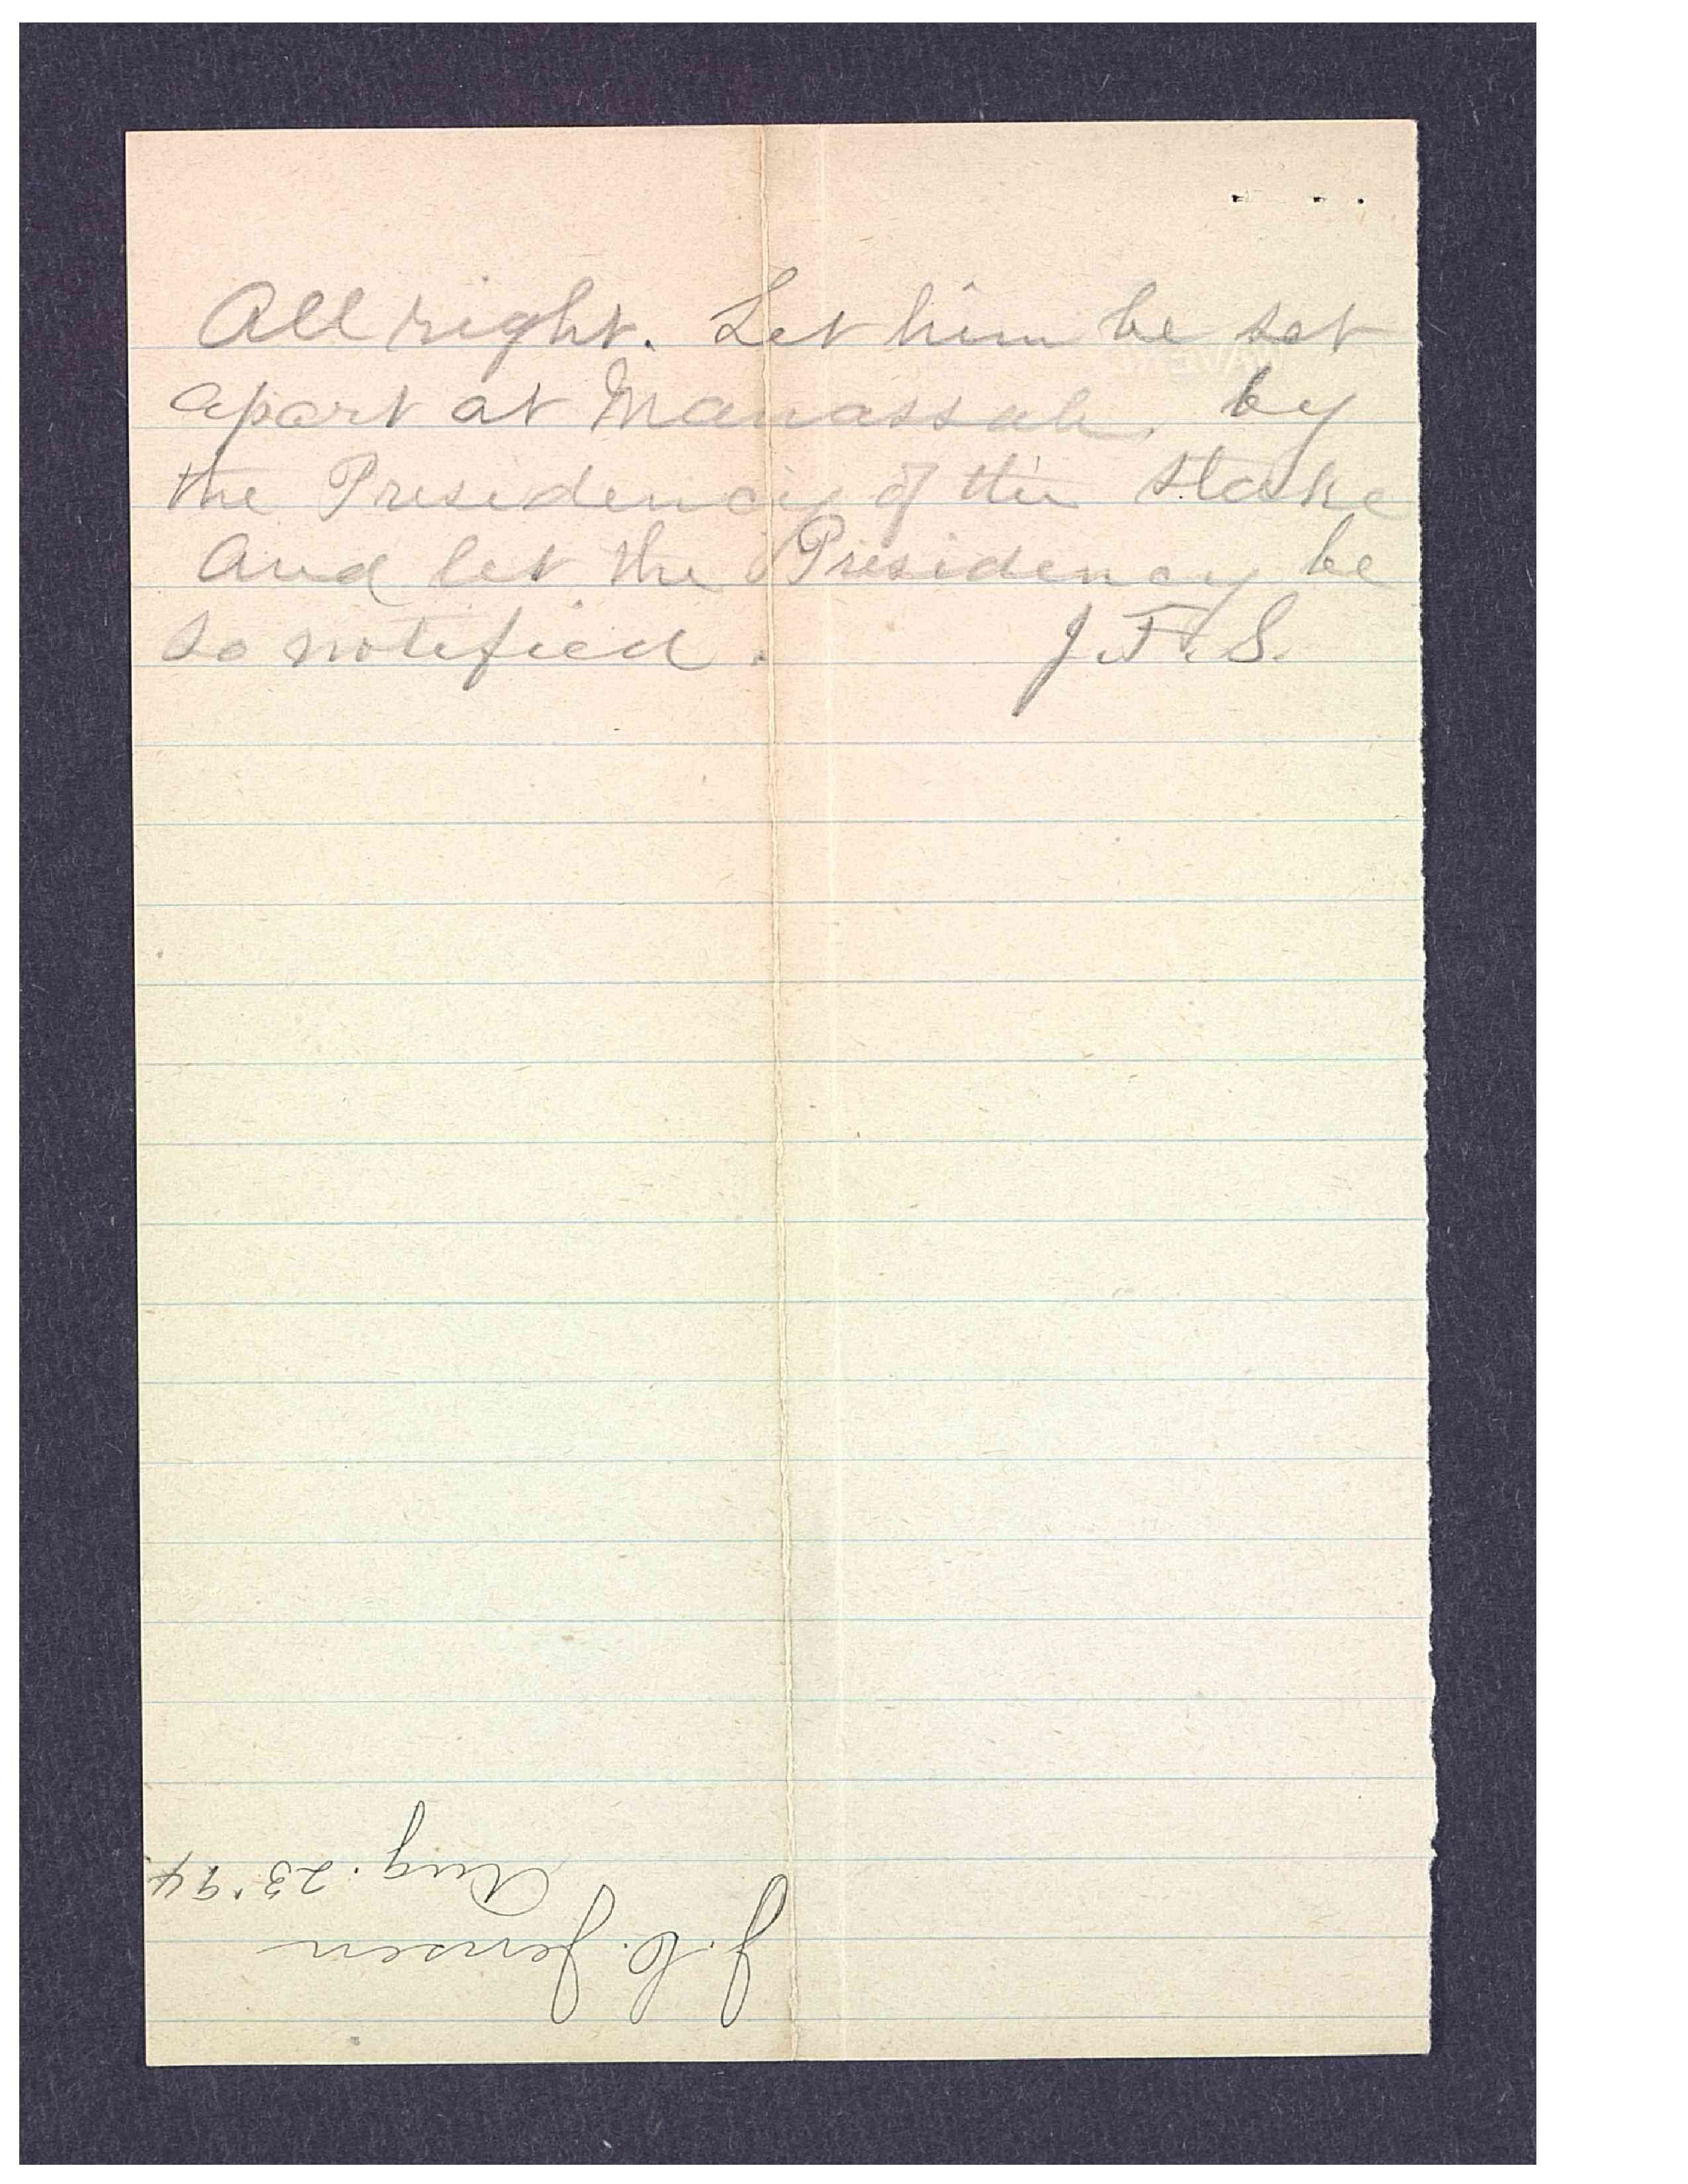 All right. Let him be set
apart at Manassah. by
the Presidency of the Stake
And let the Presidency be
so notified. J. F. S.
J. C. Jensen
Aug. 23 '94.